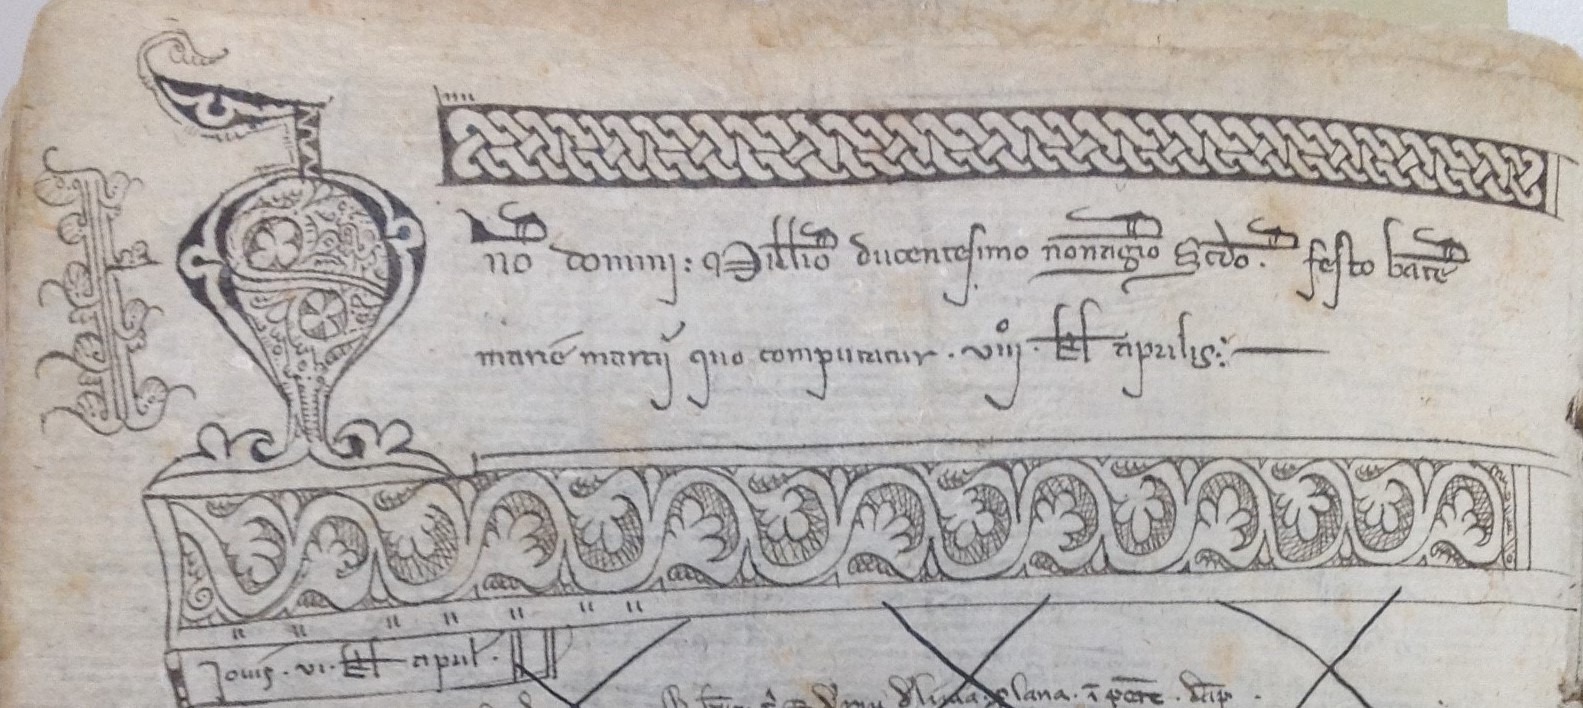 no domini: Millio ducentesimo nonagio Scdo. festo bate
marie marcij quo computatur. viijº. kl aprilis:
Jouis. vi. kl april.